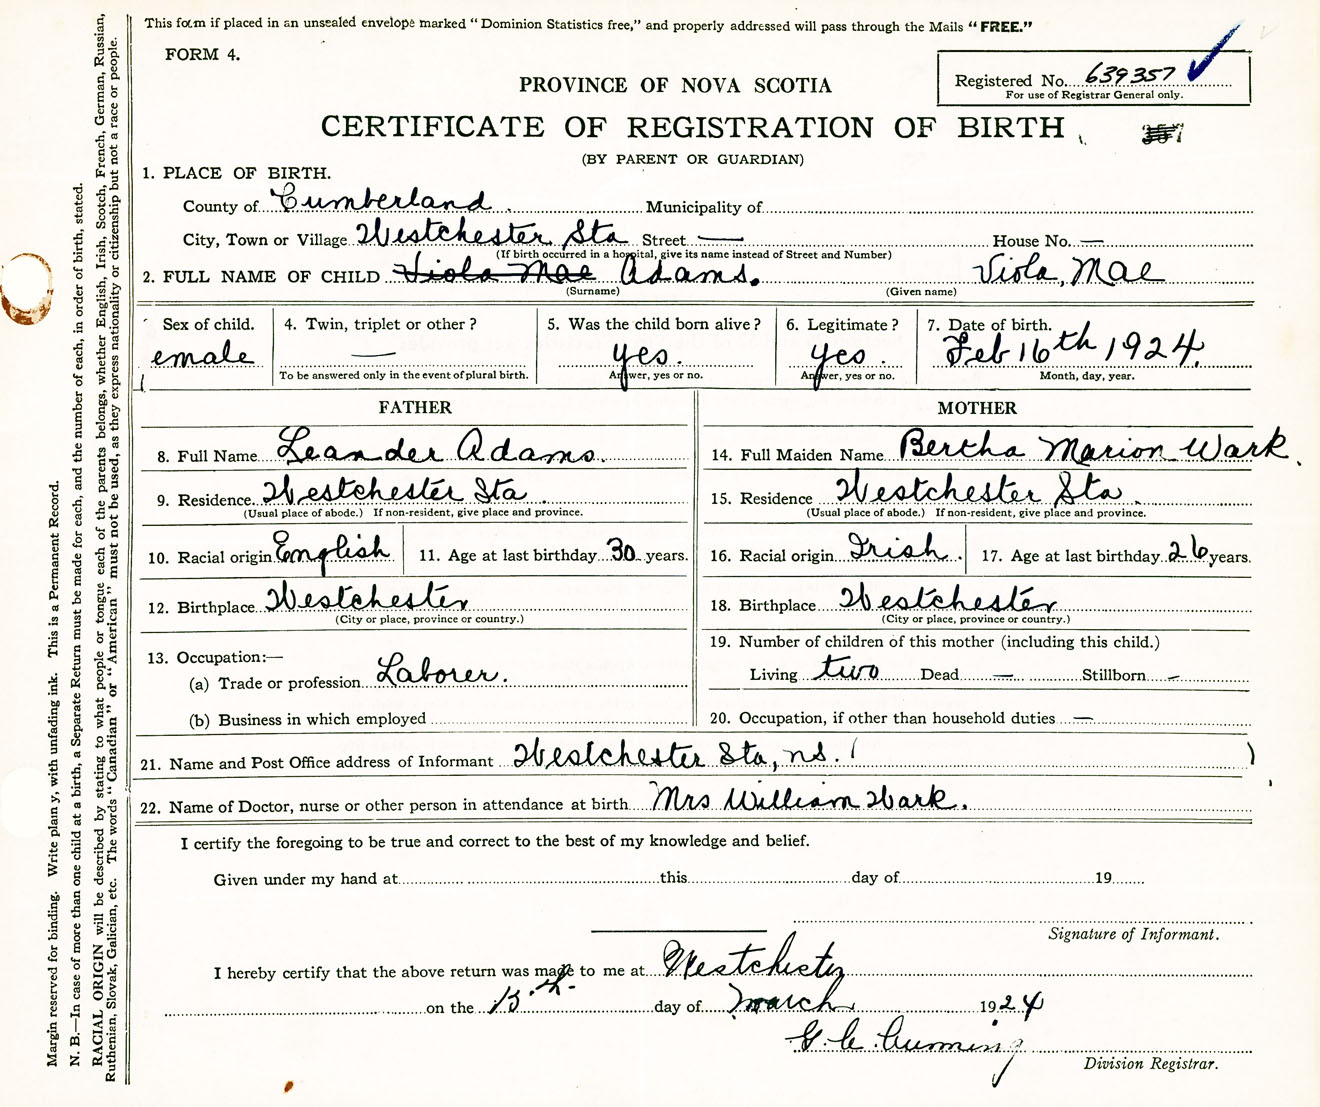 This form if placed in an unsealed envelope marked "Dominion Statistics free," and properly addressed will pass through the Mails "FREE."
FORM 4.
Registered No. 639357
For use of Registrar General only.
PROVINCE OF NOVA SCOTIA
CERTIFICATE OF REGISTRATION OF BIRTH
(BY PARENT OR GUARDIAN)
1. PLACE OF BIRTH.
County of Cumberland Municipality of
City, Town or Village Westchester Sta Street — House No. —
(If birth occurred in a hospital, give its name instead of Street and Number)
2. FULL NAME OF CHILD Viola Mae Adams. Viola, Mae
(Surname) (Given name)
Sex of child. 4. Twin, triplet or other? 5. Was the child born alive? 6. Legitimate? 7. Date of birth.
emale — yes. yes. Feb 16th 1924.
To be answered only in the event of plural birth. Answer, yes or no. Answer, yes or no. Month, day, year.
FATHER
8. Full Name Leander Adams.
9. Residence Westchester Sta
(Usual place of abode.) If non-resident, give place and province.
10. Racial origin English 11. Age at last birthday 30 years.
12. Birthplace Westchester
(City or place, province or country.)
13. Occupation:—
(a) Trade or profession Laborer.
(b) Business in which employed
MOTHER
14. Full Maiden Name Bertha Marion Wark.
15. Residence Westchester Sta.
(Usual place of abode.) If non-resident, give place and province.
16. Racial origin Irish. 17. Age at last birthday 26 years.
18. Birthplace Westchester
(City or place, province or country.)
19. Number of children of this mother (including this child.)
Living two Dead — Stillborn -
20. Occupation, if other than household duties —
21. Name and Post Office address of Informant Westchester Sta, ns.
22. Name of Doctor, nurse or other person in attendance at birth Mrs William Wark.
I certify the foregoing to be true and correct to the best of my knowledge and belief.
Given under my hand at this day of 19
Signature of Informant.
I hereby certify that the above return was made to me at Westchester
on the 15th. day of March 1924
G. C. Cumming
Division Registrar.
Margin reserved for binding. Write plain y, with unfading ink. This is a Permanent Record.
N. B.—In case of more than one child at a birth, a Separate Return must be made for each, and the number of each, in order of birth, stated.
RACIAL ORIGIN will be described by stating to what people or tongue each of the parents belongs, whether English, Irish, Scotch, French, German, Russian,
Ruthenian, Slovak, Galician, etc. The words "Canadian" or "American" must not be used, as they express nationality or citizenship but not a race or people.